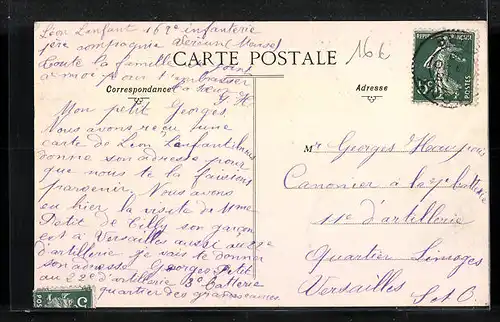 Léon Lanfant 162e infanterie
1ère compagnie Verdun (Meuse)
Toute la famille se joint
à moi pour t'embrasser
CARTE POSTALE
Correspondance
Adresse
Mon petit Georges
Nous avons reçu une
carte de Léon Lanfant il nous
donne son adresse pour
que nous te la fassions
parvenir. Nous avons
eu hier la visite de Mme
Petit de Cilly son garçon
est à Versailles aussi au 22e
d'artillerie je vais te donner
son adresse Georges Petit
au 22e d'artillerie 3e batterie
quartier des
Mr Georges
Canonier à la batterie
11e d'artillerie
Quartier Limoges
Versailles
S et O.
16 €
REPUBLIQUE FRANÇAISE
5c
POSTES